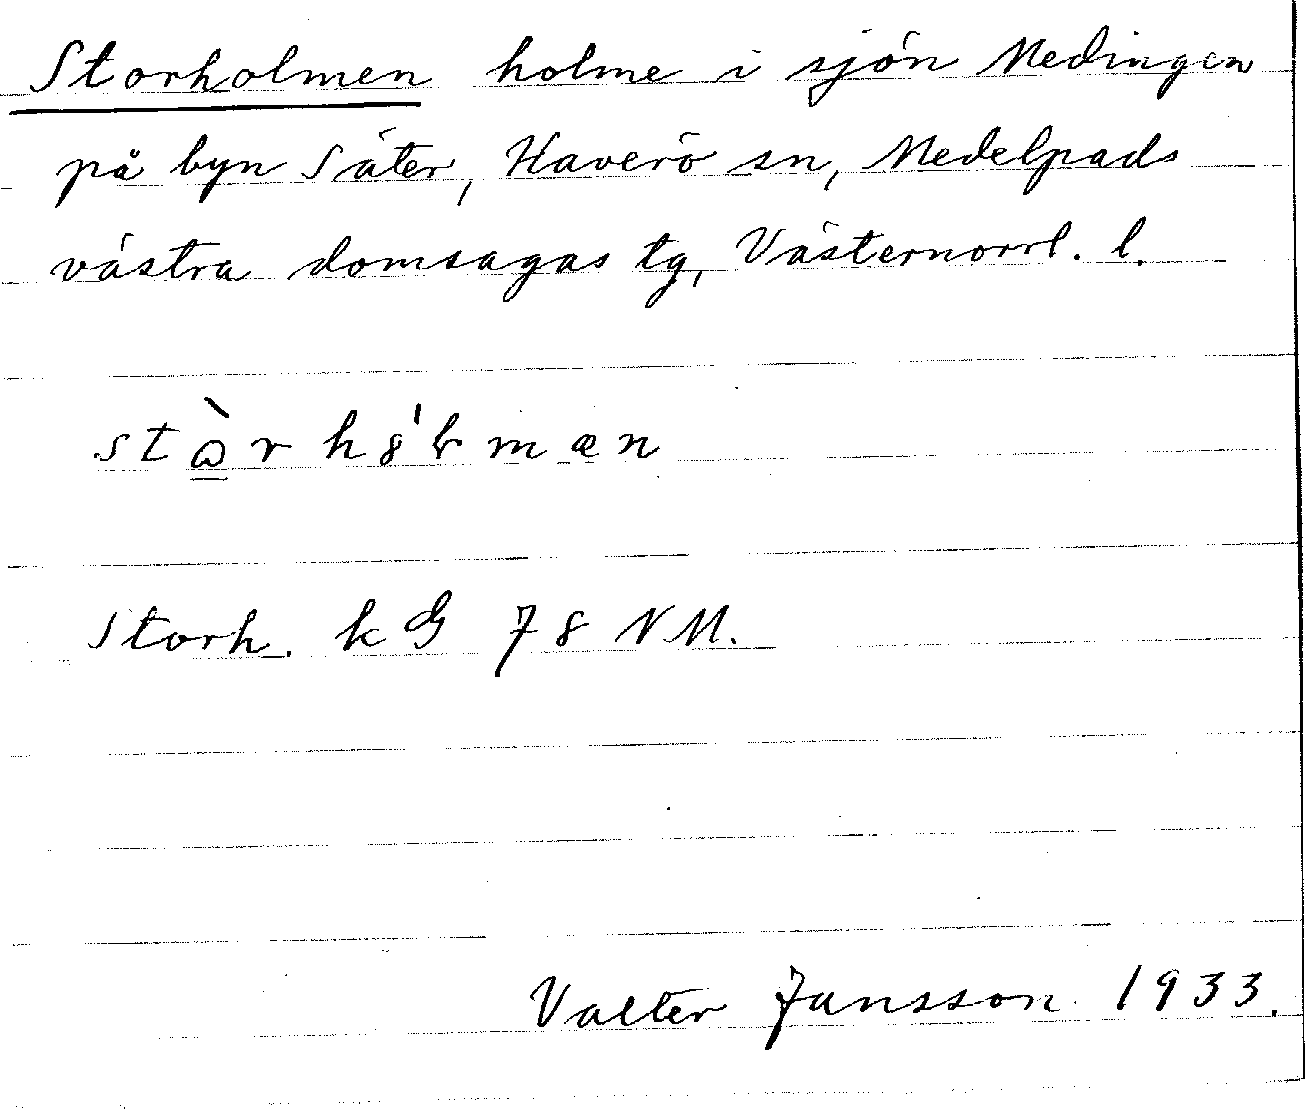 Storholmen holme i sjön Medingen
på byn Säter, Haverö sn, Medelpads
västra domsagas tg, Västernorrl. l.
Storh. kG 78 NM.
Valter Jansson 1933.